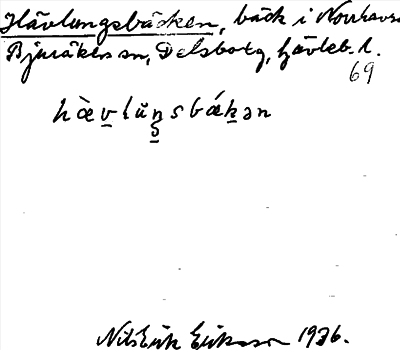 Hävlungsbäcken, bäck i Norrhavra
Bjuråkers sn, Delsbo tg, Gävleb. l.
69
hàv̲lŭn̲sbák̲ən
Nils Erik Eriksson 1936.